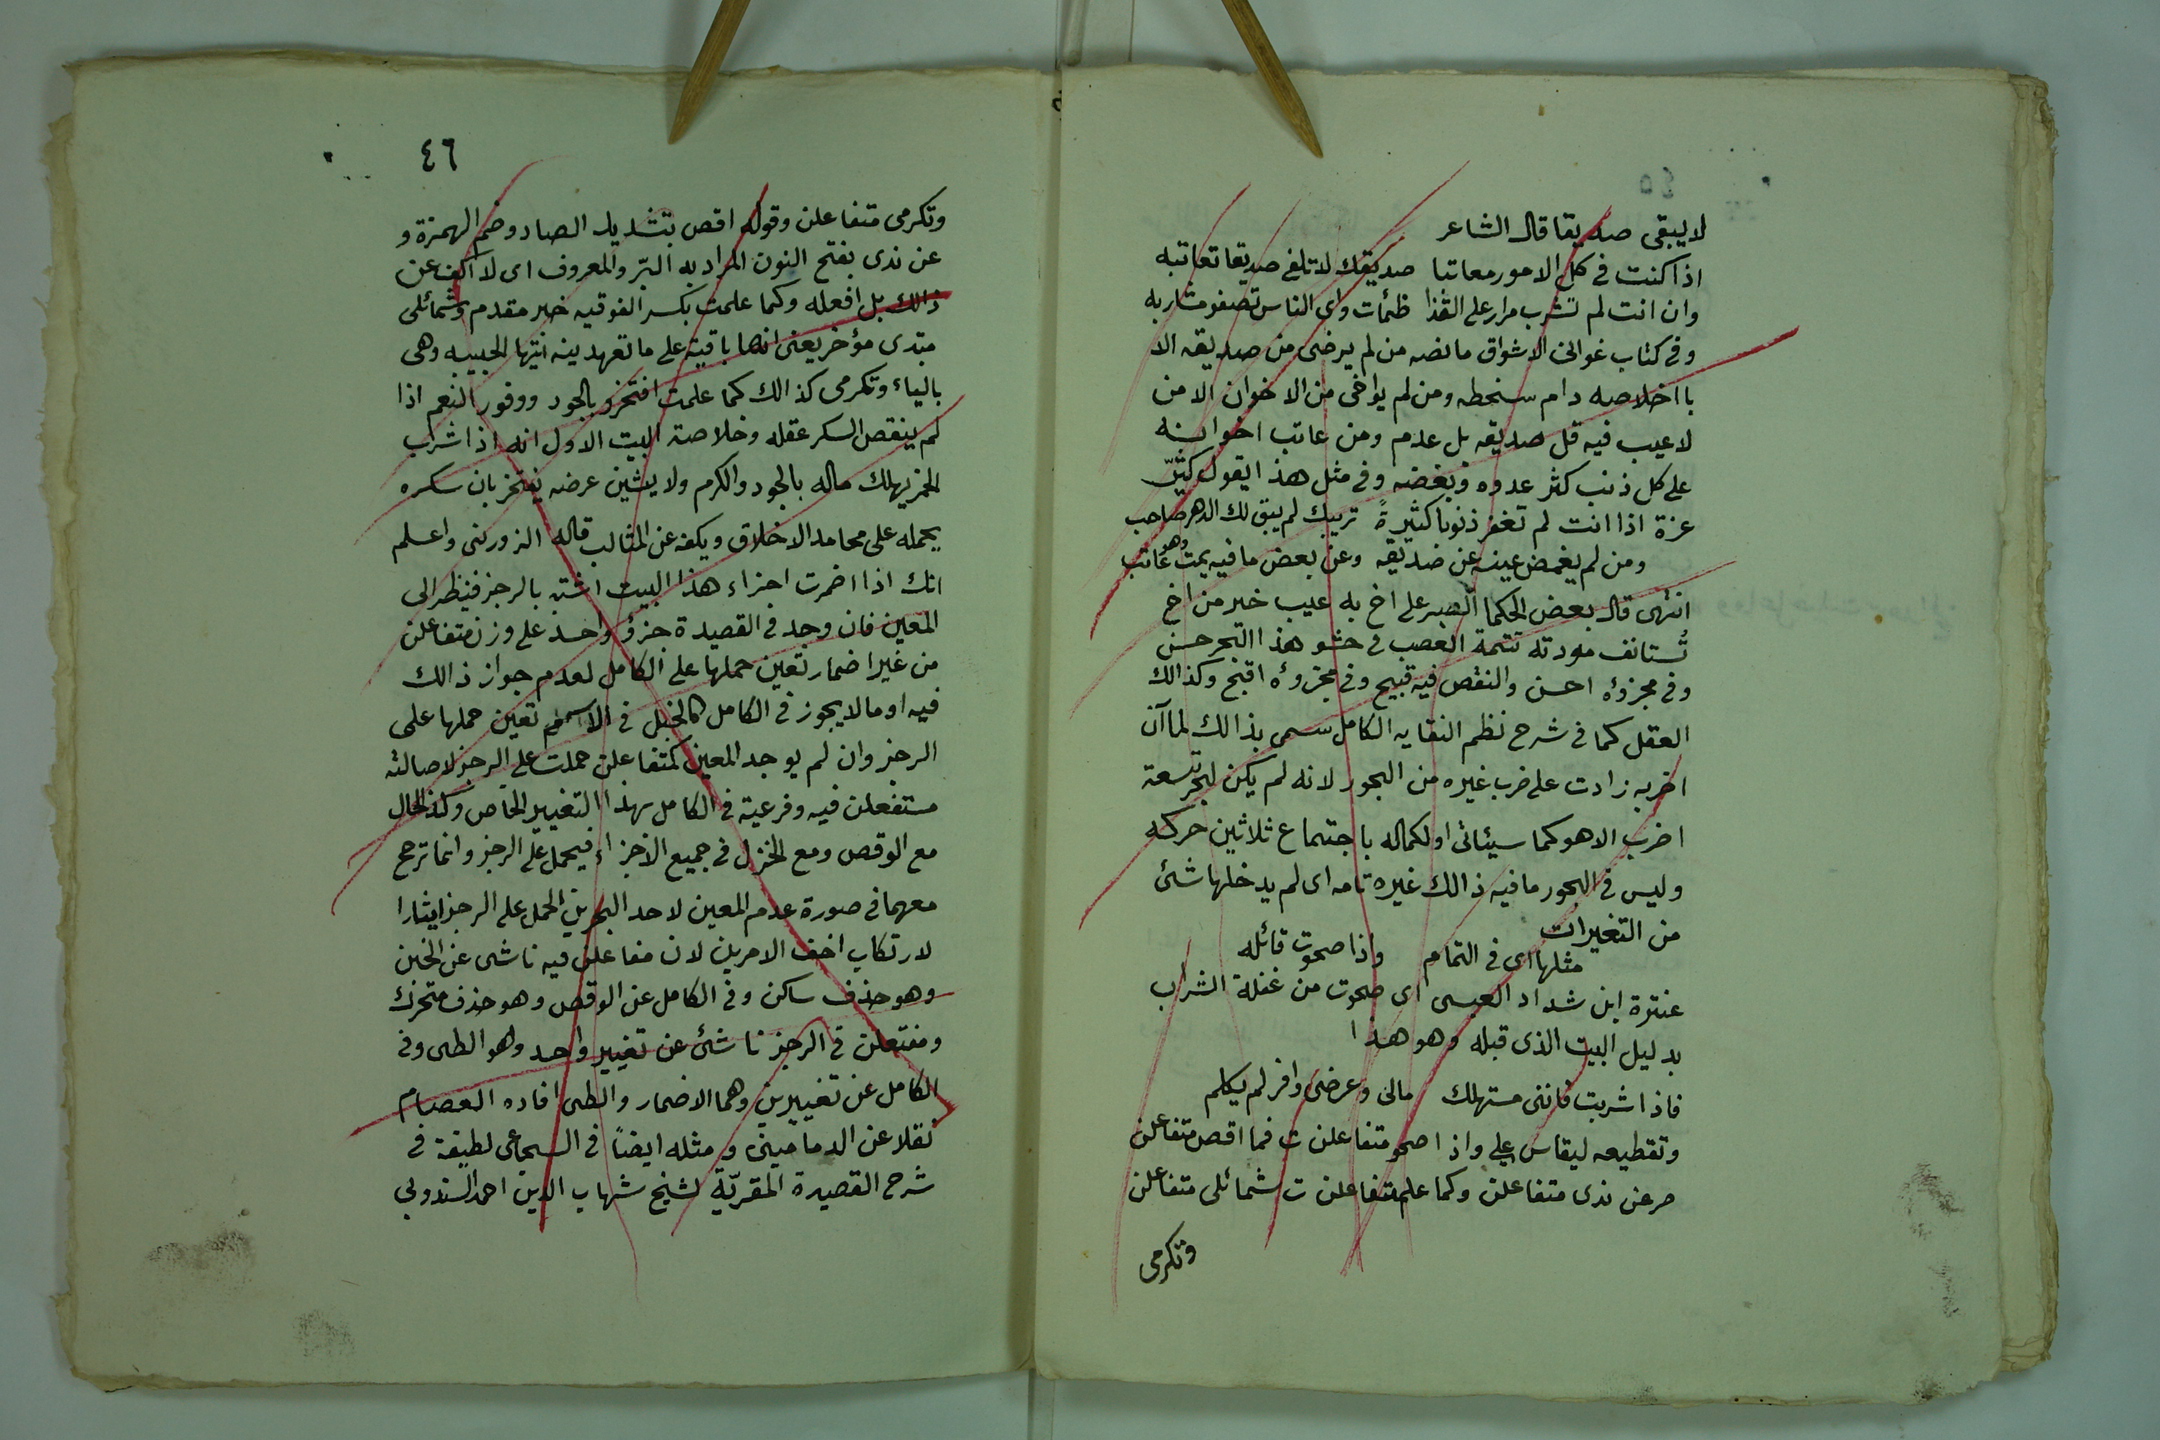 ٤٥
لا يبقى صديقا قال الشاعر
اذا كنت فى كل الامور معاتبا صديقك لا تلغى صديقا تعاتبه
وان انت لم تشرب مرار على القذا ظئمات واى الناس تصفو مشاربه
وفى كتاب غوالى الاشواق مانصه من لم يرضى من صديقه الا
با اخلاصه دام سخطه ومن لم يواخى من الاخوان الا من
لا عيب فيه قل صديقه بل عدم ومن عاتب اخوانه
على كل ذنب كثر عدوه وبغضه وفى مثل هذا يقول كثيّر
عزة اذا انت لم تغفر ذنوبا كثيرةً تريبك لم يبق لك الدهر صاحب
ومن لم يغمض عينه عن صديقه وعن بعض ما فيه يمت وهو عاتب
انتهى قال بعض الحكما الصبر على اخ به عيب خير من اخ
تُستانف مودته تتمة العصب فى حشو هذا البحر حسن
وفى مجزوئه احسن والنقص فيه قبيح وفى مجزوئه اقبح وكذالك
العقل كما فى شرح نظم النقايه الكامل سمى بذالك لما ان
اضربه زادت على ضرب غيره من البحور لانه لم يكن لبحر تسعة
اضرب الا هو كما سيئاتى او لكماله باجتماع ثلاثين حركه
وليس فى البحور ما فيه ذالك غيره تامه اى لم يدخلها شئ
من التغيرات
مثلها اى فى التمام واذا صحوت قائله
عنترة ابن شداد العبسى اى صحوت من غفلة الشراب
بدليل البيت الذى قبله وهو هذا
فاذا شربت فاننى مستهلك مالى وعرضى وافر لم يكلم
وتقطيعه ليقاس على واذا صحو متفاعلن ت فما اقص متفاعلن
صر عن ندى متفاعلن وكما علم متفاعلن ت شمائلى متفاعلن
وتكرمى
٤٦
وتكرمى متفاعلن وقوله اقص بتشديد الصاد وضم الهمزة و
عن ندى بفتح النون المراد به البرّ والمعروف اى لا اكف عن
ذالك بل افعله وكما علمت بكسر الفوقيه خبر مقدم وشمائلى
مبتدى مؤخر يعنى انها باقية على ما تعهدينه ايتها الحبيبه وهى
بالياء وتكرمى كذالك كما علمت افتخر بالجود ووفور النعم اذا
لم ينقص السكر عقله وخلاصة البيت الاول انه اذا شرب
الخمر يهلك ماله بالجود والكرم ولا يشين عرضه يفتخر بان سكره
يحمله على محامد الاخلاق ويكفه عن المثالب قاله الزوزنى واعلم
انك اذا اضمرت اجزاء هذا البيت اشتبه بالرجز فينظر الى
المعين فان وجد فى القصيدة جزؤ واحد على وزن متفاعلن
من غير اضمار تعين حملها على الكامل لعدم جواز ذالك
فيه او ما لا يجوز فى الكامل كالخبل فى تعين حملها على
الرجز وان لم يوجد المعين كمتفاعلن حملت على الرجز لاصالته
مستفعلن فيه وفرعية فى الكامل بهذا التغيير الخاص وكذ الحال
مع الوقص ومع الخزل فى جميع الاجزاء فيحمل على الرجز وانما ترجح
معهما فى صورة عدم المعين لاحد البحرين الحمل على الرجز ايثارا
لارتكاب اخف الامرين لان مفاعلن فيه ناشى عن الخبن
وهو حذف ساكن وفى الكامل عن الوقص وهو حذف متحرك
ومفتعلن فى الرجز ناشئ عن تغيير واحد وهو الطى وفى
الكامل عن تغييرين وهما الاضمار والطى افاده العصام
نقلا عن الدمامينى ومثله ايضاً فى السجاعى لطيفة فى
شرح القصيدة المقريّة لشيخ شهاب الدين احمد السندوبى